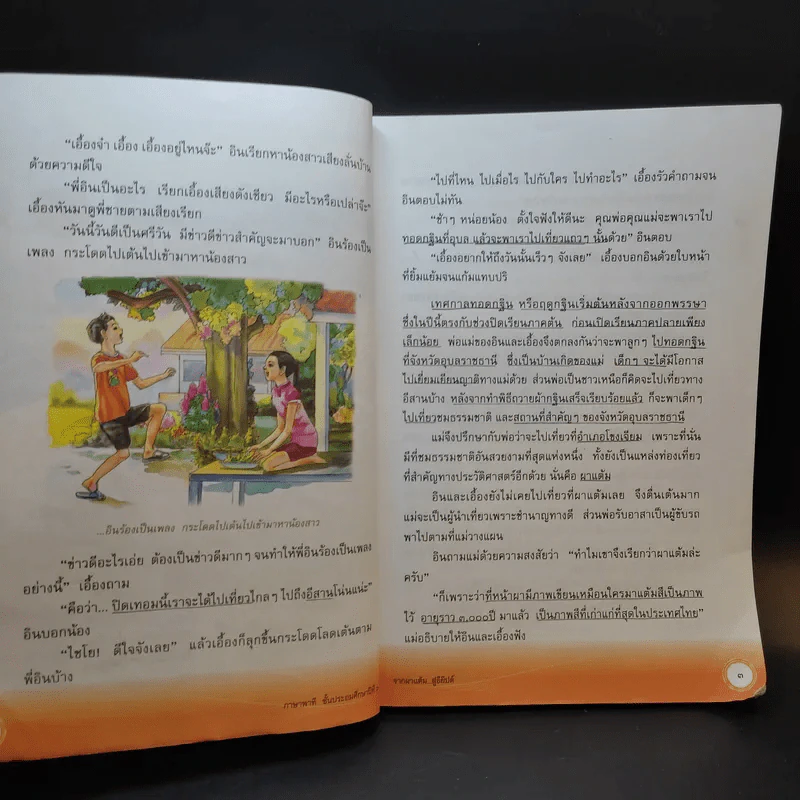 "เอื้องจ๋า เอื้อง เอื้องอยู่ไหนจ๊ะ" อินเรียกหาน้องสาวเสียงลั่นบ้าน
ด้วยความดีใจ
"พี่อินเป็นอะไร เรียกเอื้องเสียงดังเชียว มีอะไรหรือเปล่าจ๊ะ"
เอื้องหันมาดูพี่ชายตามเสียงเรียก
"วันนี้วันดีเป็นศรีวัน มีข่าวดีข่าวสำคัญจะมาบอก" อินร้องเป็น
เพลง กระโดดไปเต้นไปเข้ามาหาน้องสาว
...อินร้องเป็นเพลง กระโดดไปเต้นไปเข้ามาหาน้องสาว
"ข่าวดีอะไรเอ่ย ต้องเป็นข่าวดีมากๆ จนทำให้พี่อินร้องเป็นเพลง
อย่างนี้" เอื้องถาม
"คือว่า... ปิดเทอมนี้เราจะได้ไปเที่ยวไกลๆ ไปถึงอีสานโน่นแน่ะ"
อินบอกน้อง
"ไชโย! ดีใจจังเลย" แล้วเอื้องก็ลุกขึ้นกระโดดโลดเต้นตาม
พี่อินบ้าง
ภาษาพาที ชั้นประถมศึกษาปีที่
"ไปที่ไหน ไปเมื่อไร ไปกับใคร ไปทำอะไร" เอื้องรัวคำถามจน
อินตอบไม่ทัน
"ช้าๆ หน่อยน้อง ตั้งใจฟังให้ดีนะ คุณพ่อคุณแม่จะพาเราไป
ทอดกฐินที่อุบล แล้วจะพาเราไปเที่ยวแถวๆ นั้นด้วย" อินตอบ
"เอื้องอยากให้ถึงวันนั้นเร็วๆ จังเลย" เอื้องบอกอินด้วยใบหน้า
ที่ยิ้มแย้มจนแก้มแทบปริ
เทศกาลทอดกฐิน หรือฤดูกฐินเริ่มต้นหลังจากออกพรรษา
ซึ่งในปีนี้ตรงกับช่วงปิดเรียนภาคต้น ก่อนเปิดเรียนภาคปลายเพียง
เล็กน้อย พ่อแม่ของอินและเอื้องจึงตกลงกันว่าจะพาลูกๆ ไปทอดกฐิน
ที่จังหวัดอุบลราชธานี ซึ่งเป็นบ้านเกิดของแม่ เด็กๆ จะได้มีโอกาส
ไปเยี่ยมเยียนญาติทางแม่ด้วย ส่วนพ่อเป็นชาวเหนือก็คิดจะไปเที่ยวทาง
อีสานบ้าง หลังจากทำพิธีถวายผ้ากฐินเสร็จเรียบร้อยแล้ว ก็จะพาเด็กๆ
ไปเที่ยวชมธรรมชาติ และสถานที่สำคัญๆ ของจังหวัดอุบลราชธานี
แม่จึงปรึกษากับพ่อว่าจะไปเที่ยวที่อำเภอโขงเจียม เพราะที่นั่น
มีที่ชมธรรมชาติอันสวยงามที่สุดแห่งหนึ่ง ทั้งยังเป็นแหล่งท่องเที่ยว
ที่สำคัญทางประวัติศาสตร์อีกด้วย นั่นคือ ผาแต้ม
อินและเอื้องยังไม่เคยไปเที่ยวที่ผาแต้มเลย จึงตื่นเต้นมาก
แม่จะเป็นผู้นำเที่ยวเพราะชำนาญทางดี ส่วนพ่อรับอาสาเป็นผู้ขับรถ
พาไปตามที่แม่วางแผน
อินถามแม่ด้วยความสงสัยว่า "ทำไมเขาจึงเรียกว่าผาแต้มล่ะ
ครับ"
"ก็เพราะว่าที่หน้าผามีภาพเขียนเหมือนใครมาแต้มสีเป็นภาพ
ไว้ อายุราว ๓,๐๐๐ปี มาแล้ว เป็นภาพสีที่เก่าแก่ที่สุดในประเทศไทย"
แม่อธิบายให้อินและเอื้องฟัง
จากผาแต้ม...สู่อียิปต์
๓